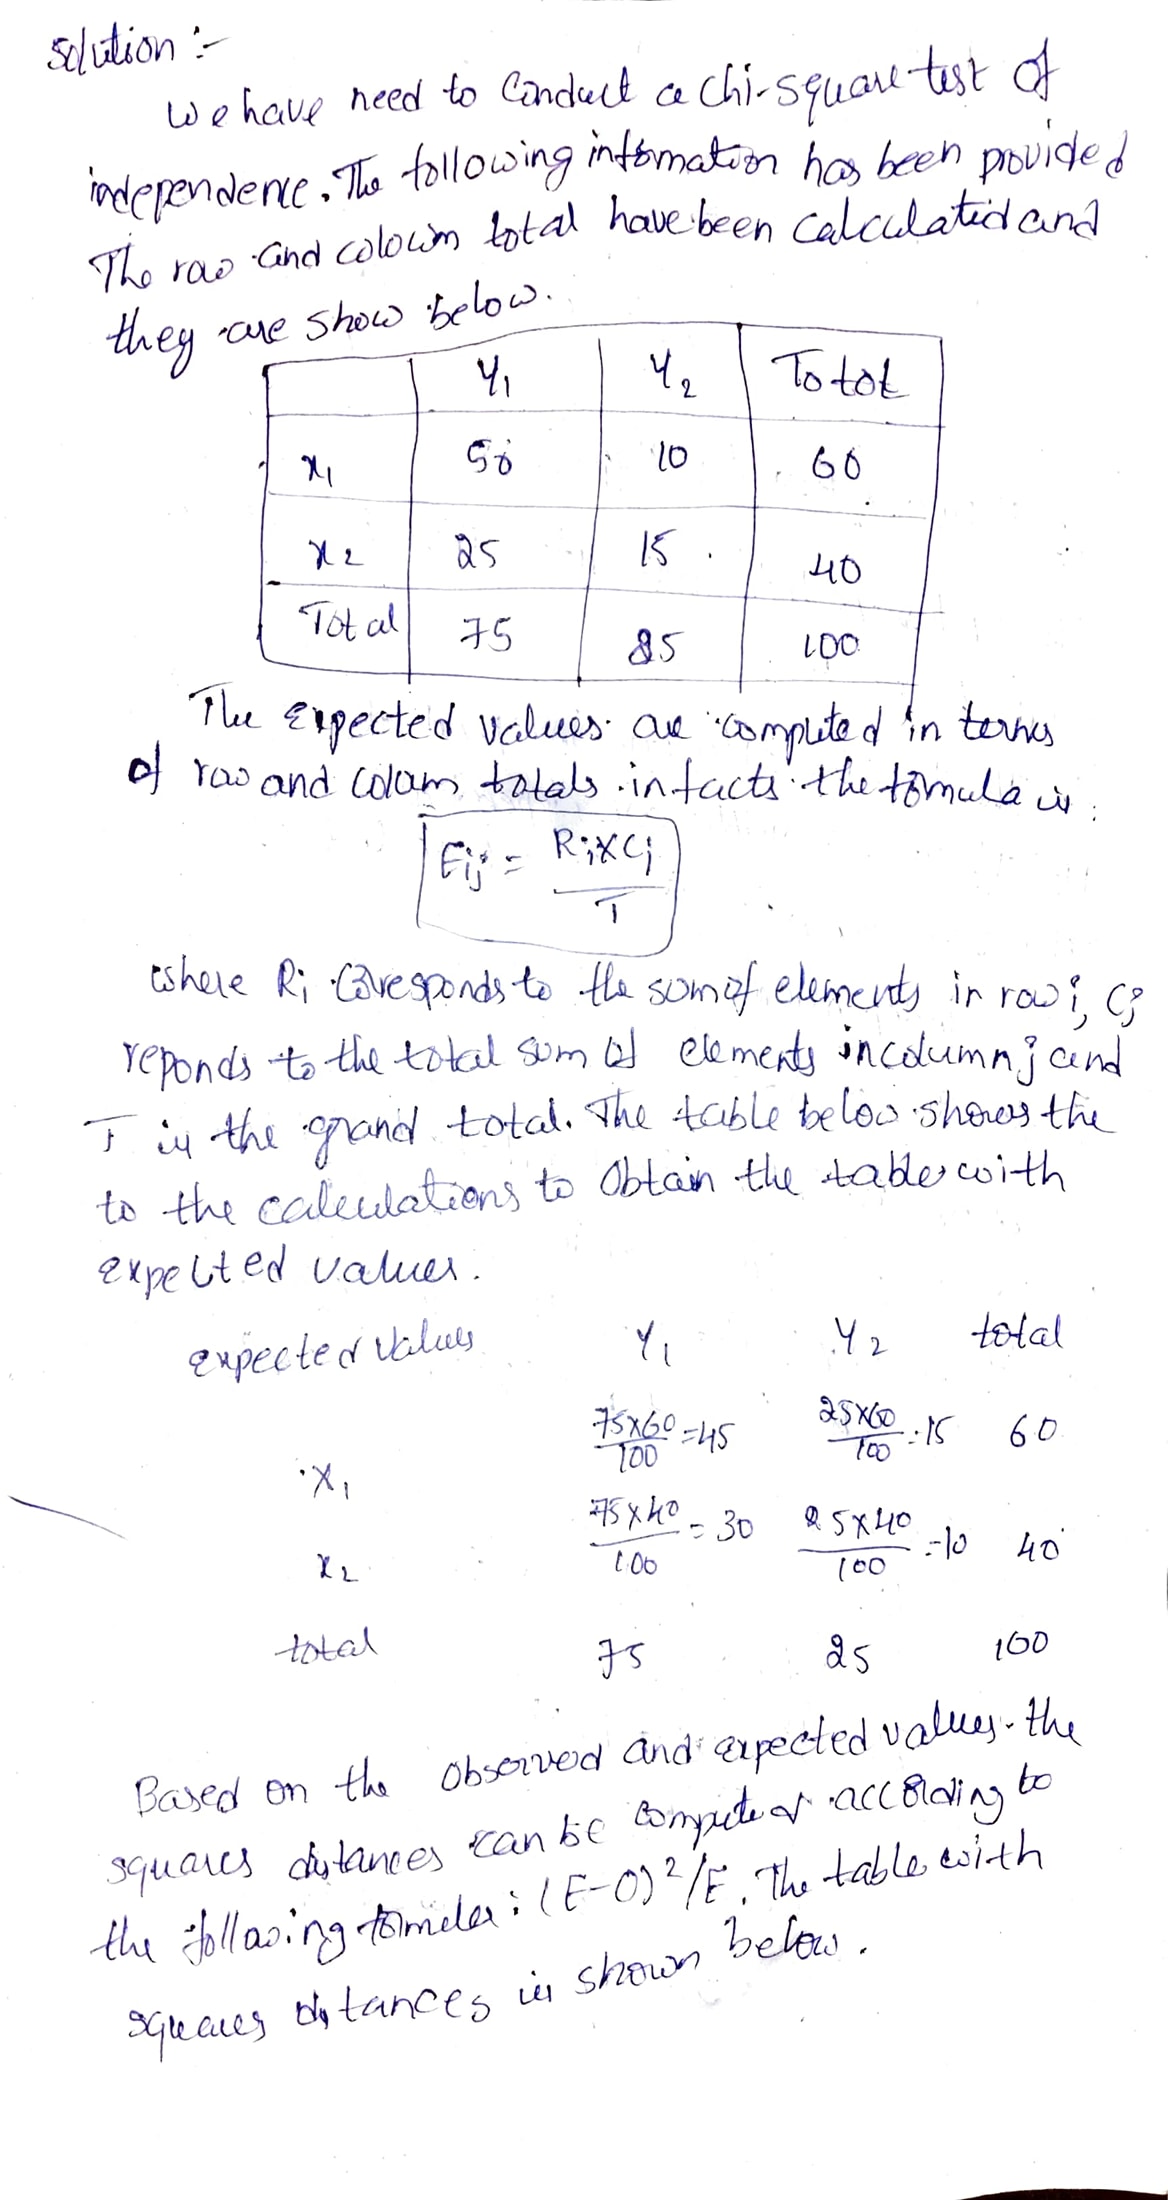 Solution :-
We have need to Conduct a chi-square test of
independence. The following information has been provided
The raw and coloum total have been calculated and
they are show below.
Y1 Y2 Totol
x1 50 10 60
x2 25 15 40
Total 75 25 100
The Expected values are computed in terms
of raw and colam totals in facts the formula is:
Eij = Ri×Cj / T
where Ri Coresponds to the sum of elements in row i, Cj
reponds to the total sum of elements in column j and
T is the grand total. The table below shows the
to the calculations to Obtain the table with
expected values.
expected values Y1 Y2 total
x1 75×60/100 =45 25×60/100 =15 60
x2 75×40/100 = 30 25×40/100 =10 40
total 75 25 100
Based on the Observed and expected values the
squares distances can be computed according to
the following : (E-O)²/E. The table with
squares distances is shown below.